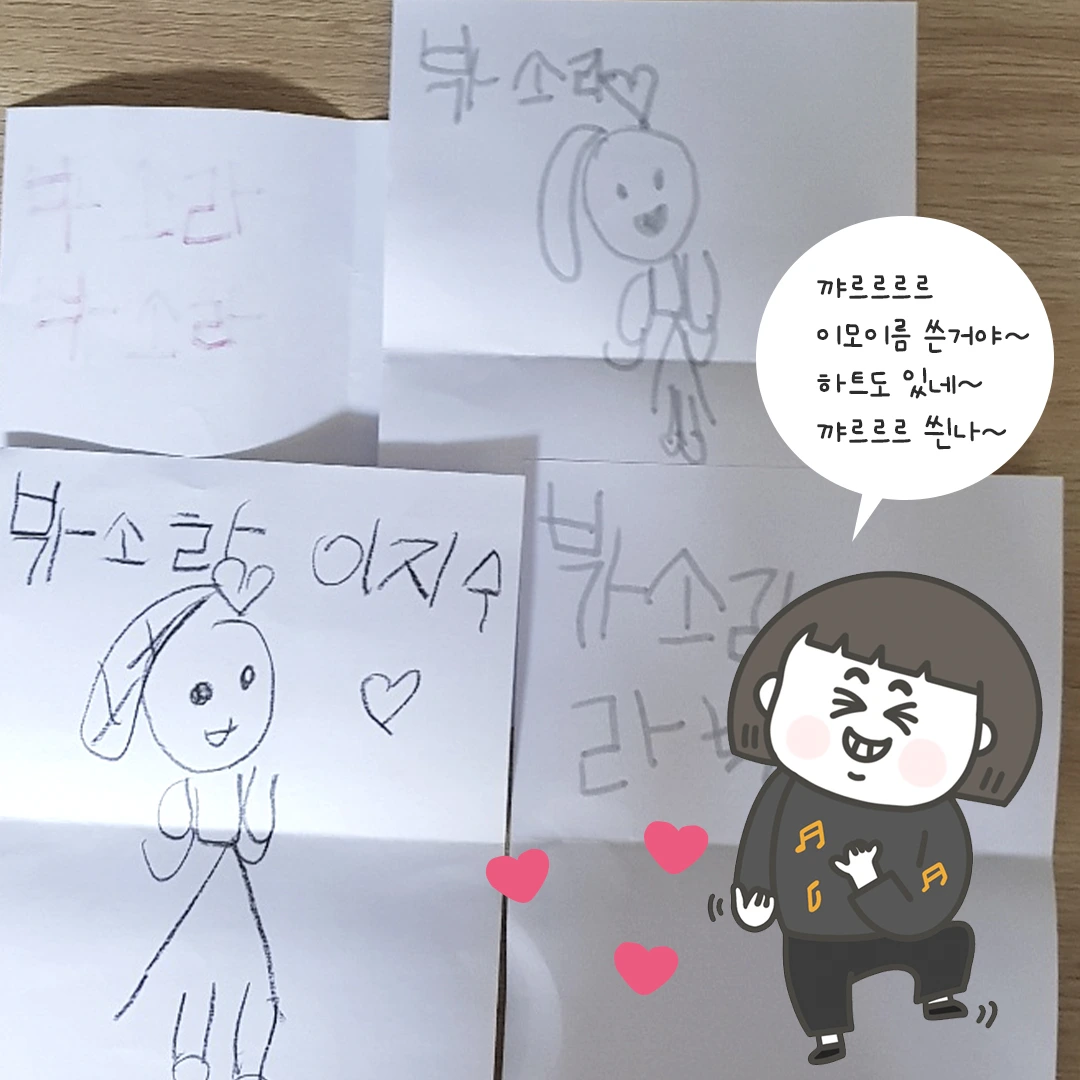 박소라
박소라
박소라
박소라 이지수
박소
라
꺄르르르르
이모이름 쓴거야~
하트도 있네~
꺄르르르 씐나~